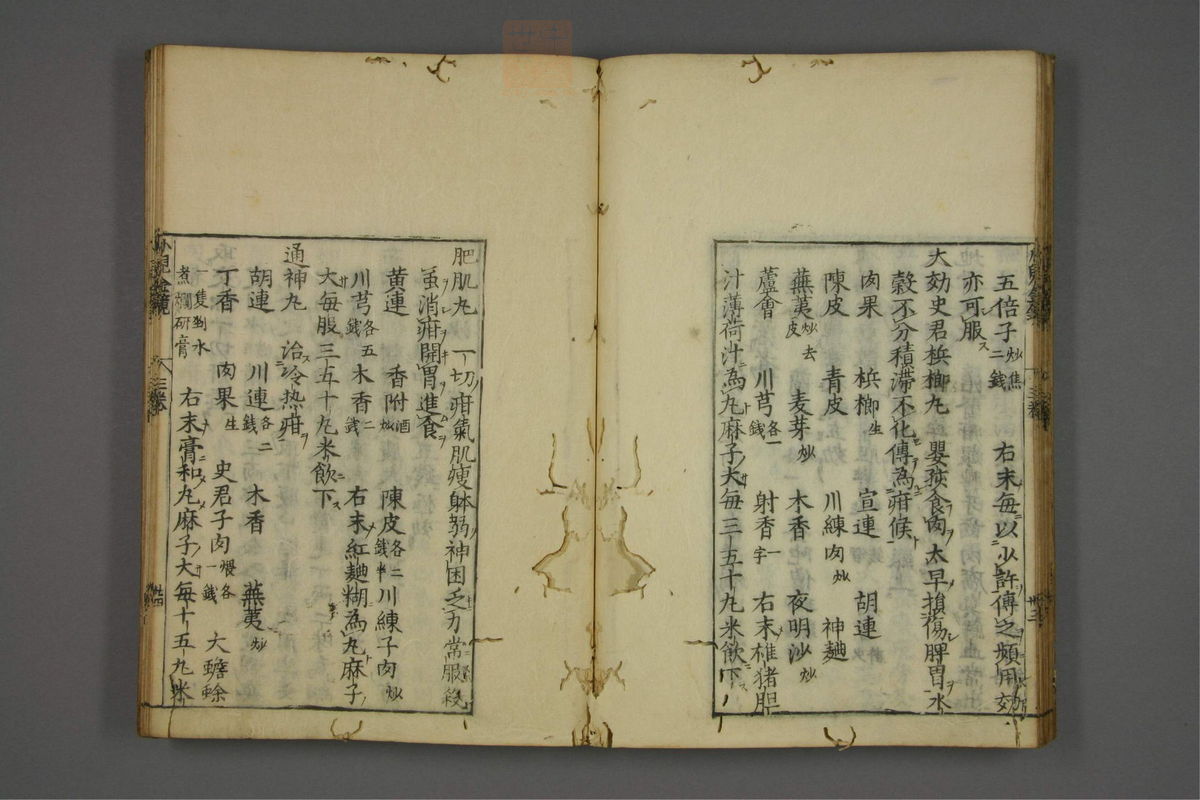 五倍子炒焦二錢 右末每以少許傳之頻用効
亦可服ス
大効史君梹榔丸 嬰孩食肉太早損傷脾胃水
穀不分積滯不化傳為疳候
肉果 梹榔生 宣連 胡連
陳皮 青皮 川練肉炒 神麯
蕪荑炒去皮 麦芽炒 木香 夜明沙炒
蘆會 川芎各一錢 射香一字 右末雄猪胆
汁薄荷汁為丸麻子大每三十五十丸米飲下
肥肌丸 一切疳氣肌瘦躰弱神困乏力常服殺
䖝消疳開胃進食
黄連 香附酒炒 陳皮各二錢半 川練子肉炒
川芎各五錢 木香二錢 右末紅麯糊為丸麻子
大每服三十五十丸米飲下ス
通神丸 治冷热疳
胡連 川連各二錢 木香 蕪荑炒
丁香 肉果生 史君子肉煨各一錢 大蟾蜍
一隻剉水煮爛研膏 右末膏和丸麻子大每十五丸米
小児金鏡